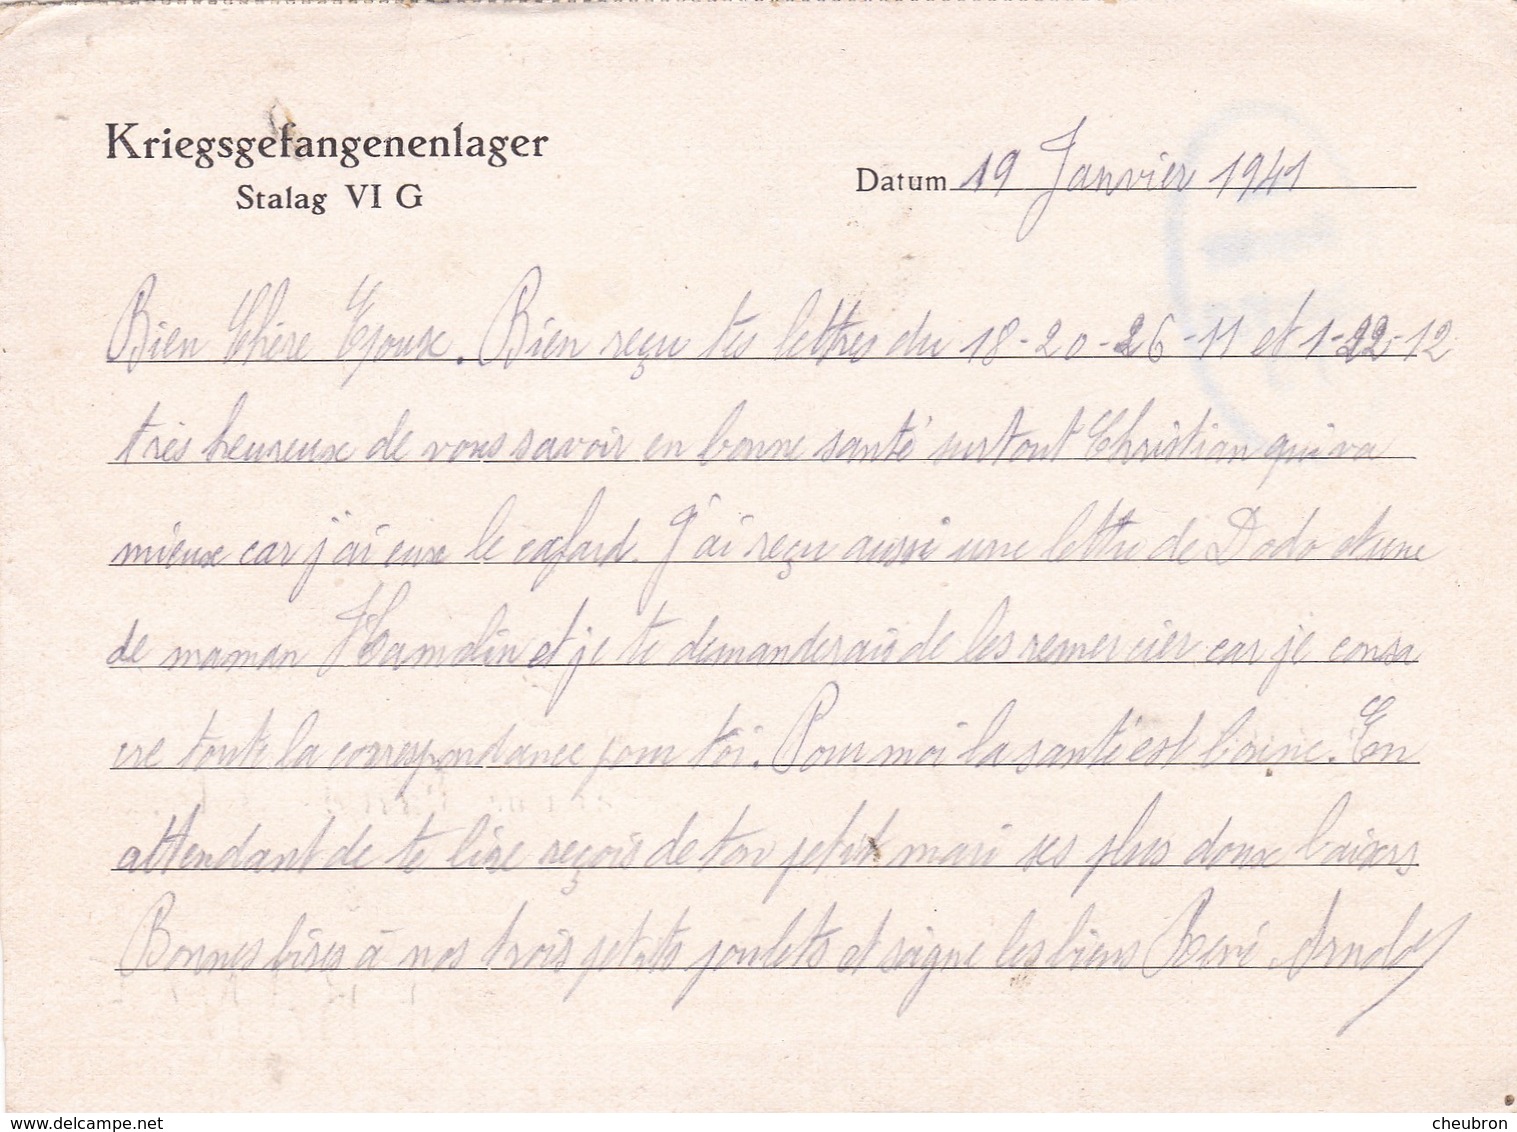 Kriegsgefangenenlager
Stalag VI G
Datum 19 Janvier 1941
Bien Chère Epoux. Bien reçu tes lettres du 18-20-26-11 et 1-22-12
très heureux de vous savoir en bonne santé surtout Christian qui va
mieux car j'ai eux le cafard. J'ai reçu aussi une lettre de Dodo et une
de maman Hamelin et je te demanderais de les remercier car je consa
cre toute la correspondance pour toi. Pour moi la santé est bonne. En
attendant de te lire reçois de ton petit mari ses plus doux baisers
Bonnes bises à nos trois petits poulets et soigne les biens René
delcampe.net
cheubron